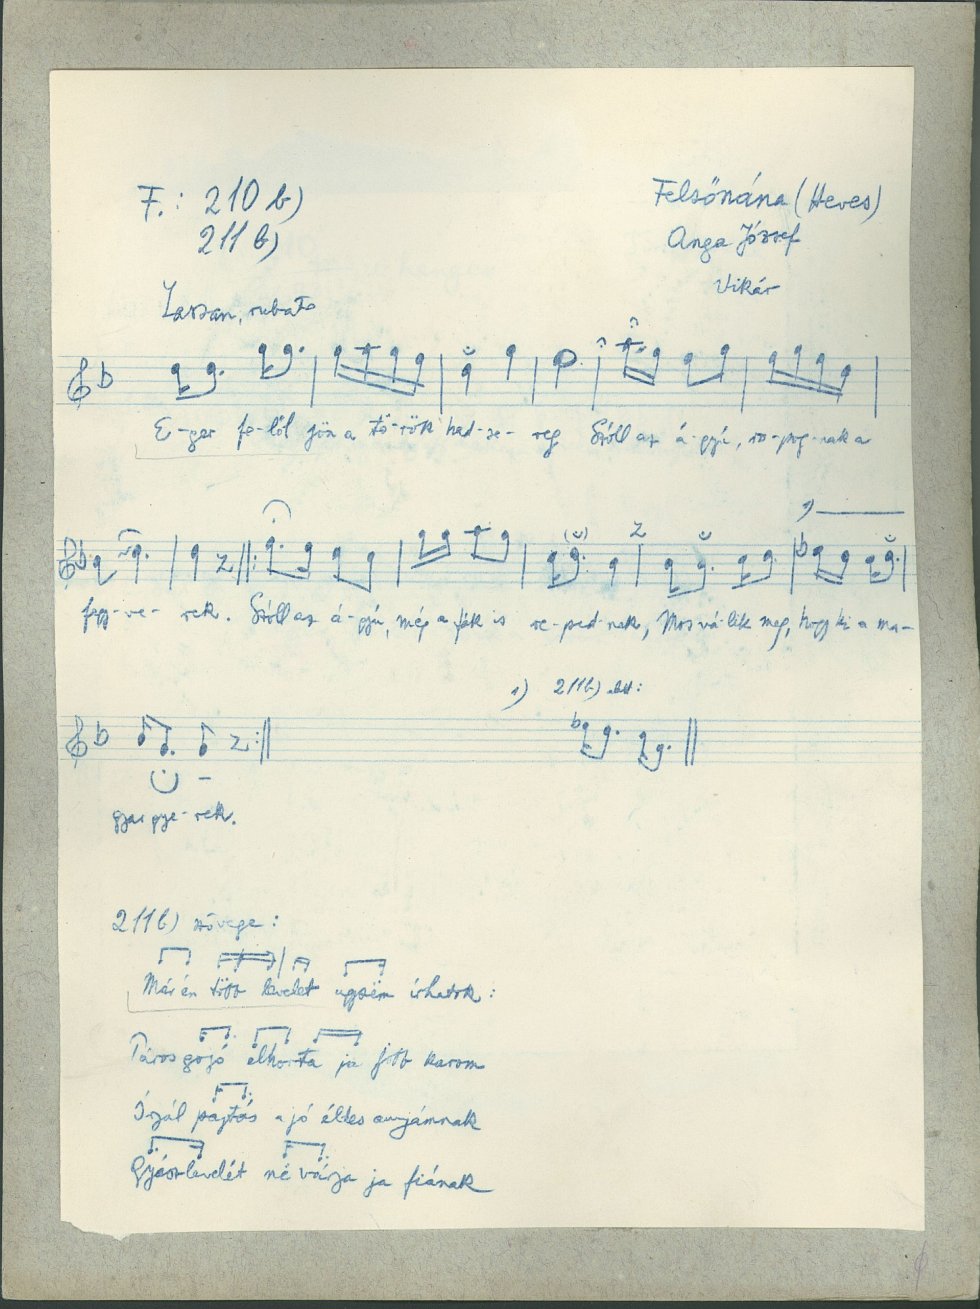 F.: 210 b)
211 b)
Felsőnána (Heves)
Anga József
Vikár
Lassan, rubato
E-ger fe-lől jön a tö-rök had-se-reg Szóll az á-gyú, ro-pog-nak a
fegy-ve-rek. Szóll az á-gyú, még a fák is re-ped-nek, Mos vá-lik meg, hogy ki a ma-
1)
gyar gye-rek.
1) 211b) alatt:
211b) szövege:
Már én több levelet ugysëm irhatok:
Piros gojó elhorta ja jobb karom
Írjál pajtás a jó édes anyámnak
Gyászlevelét né várja ja fiának